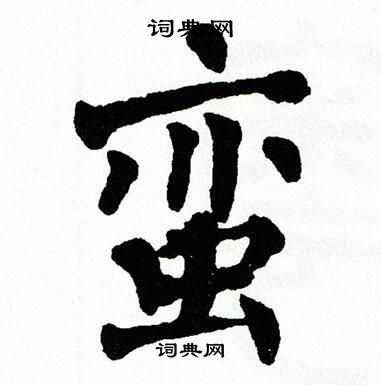 词典网
蛮
词典网